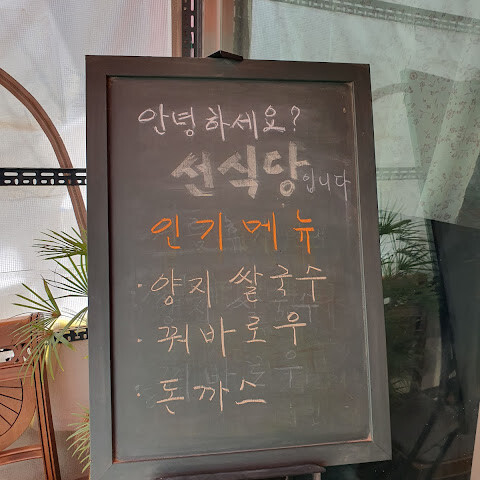 안녕하세요?
선식당입니다
인기메뉴
· 양지 쌀국수
· 꿔바로우
· 돈까스